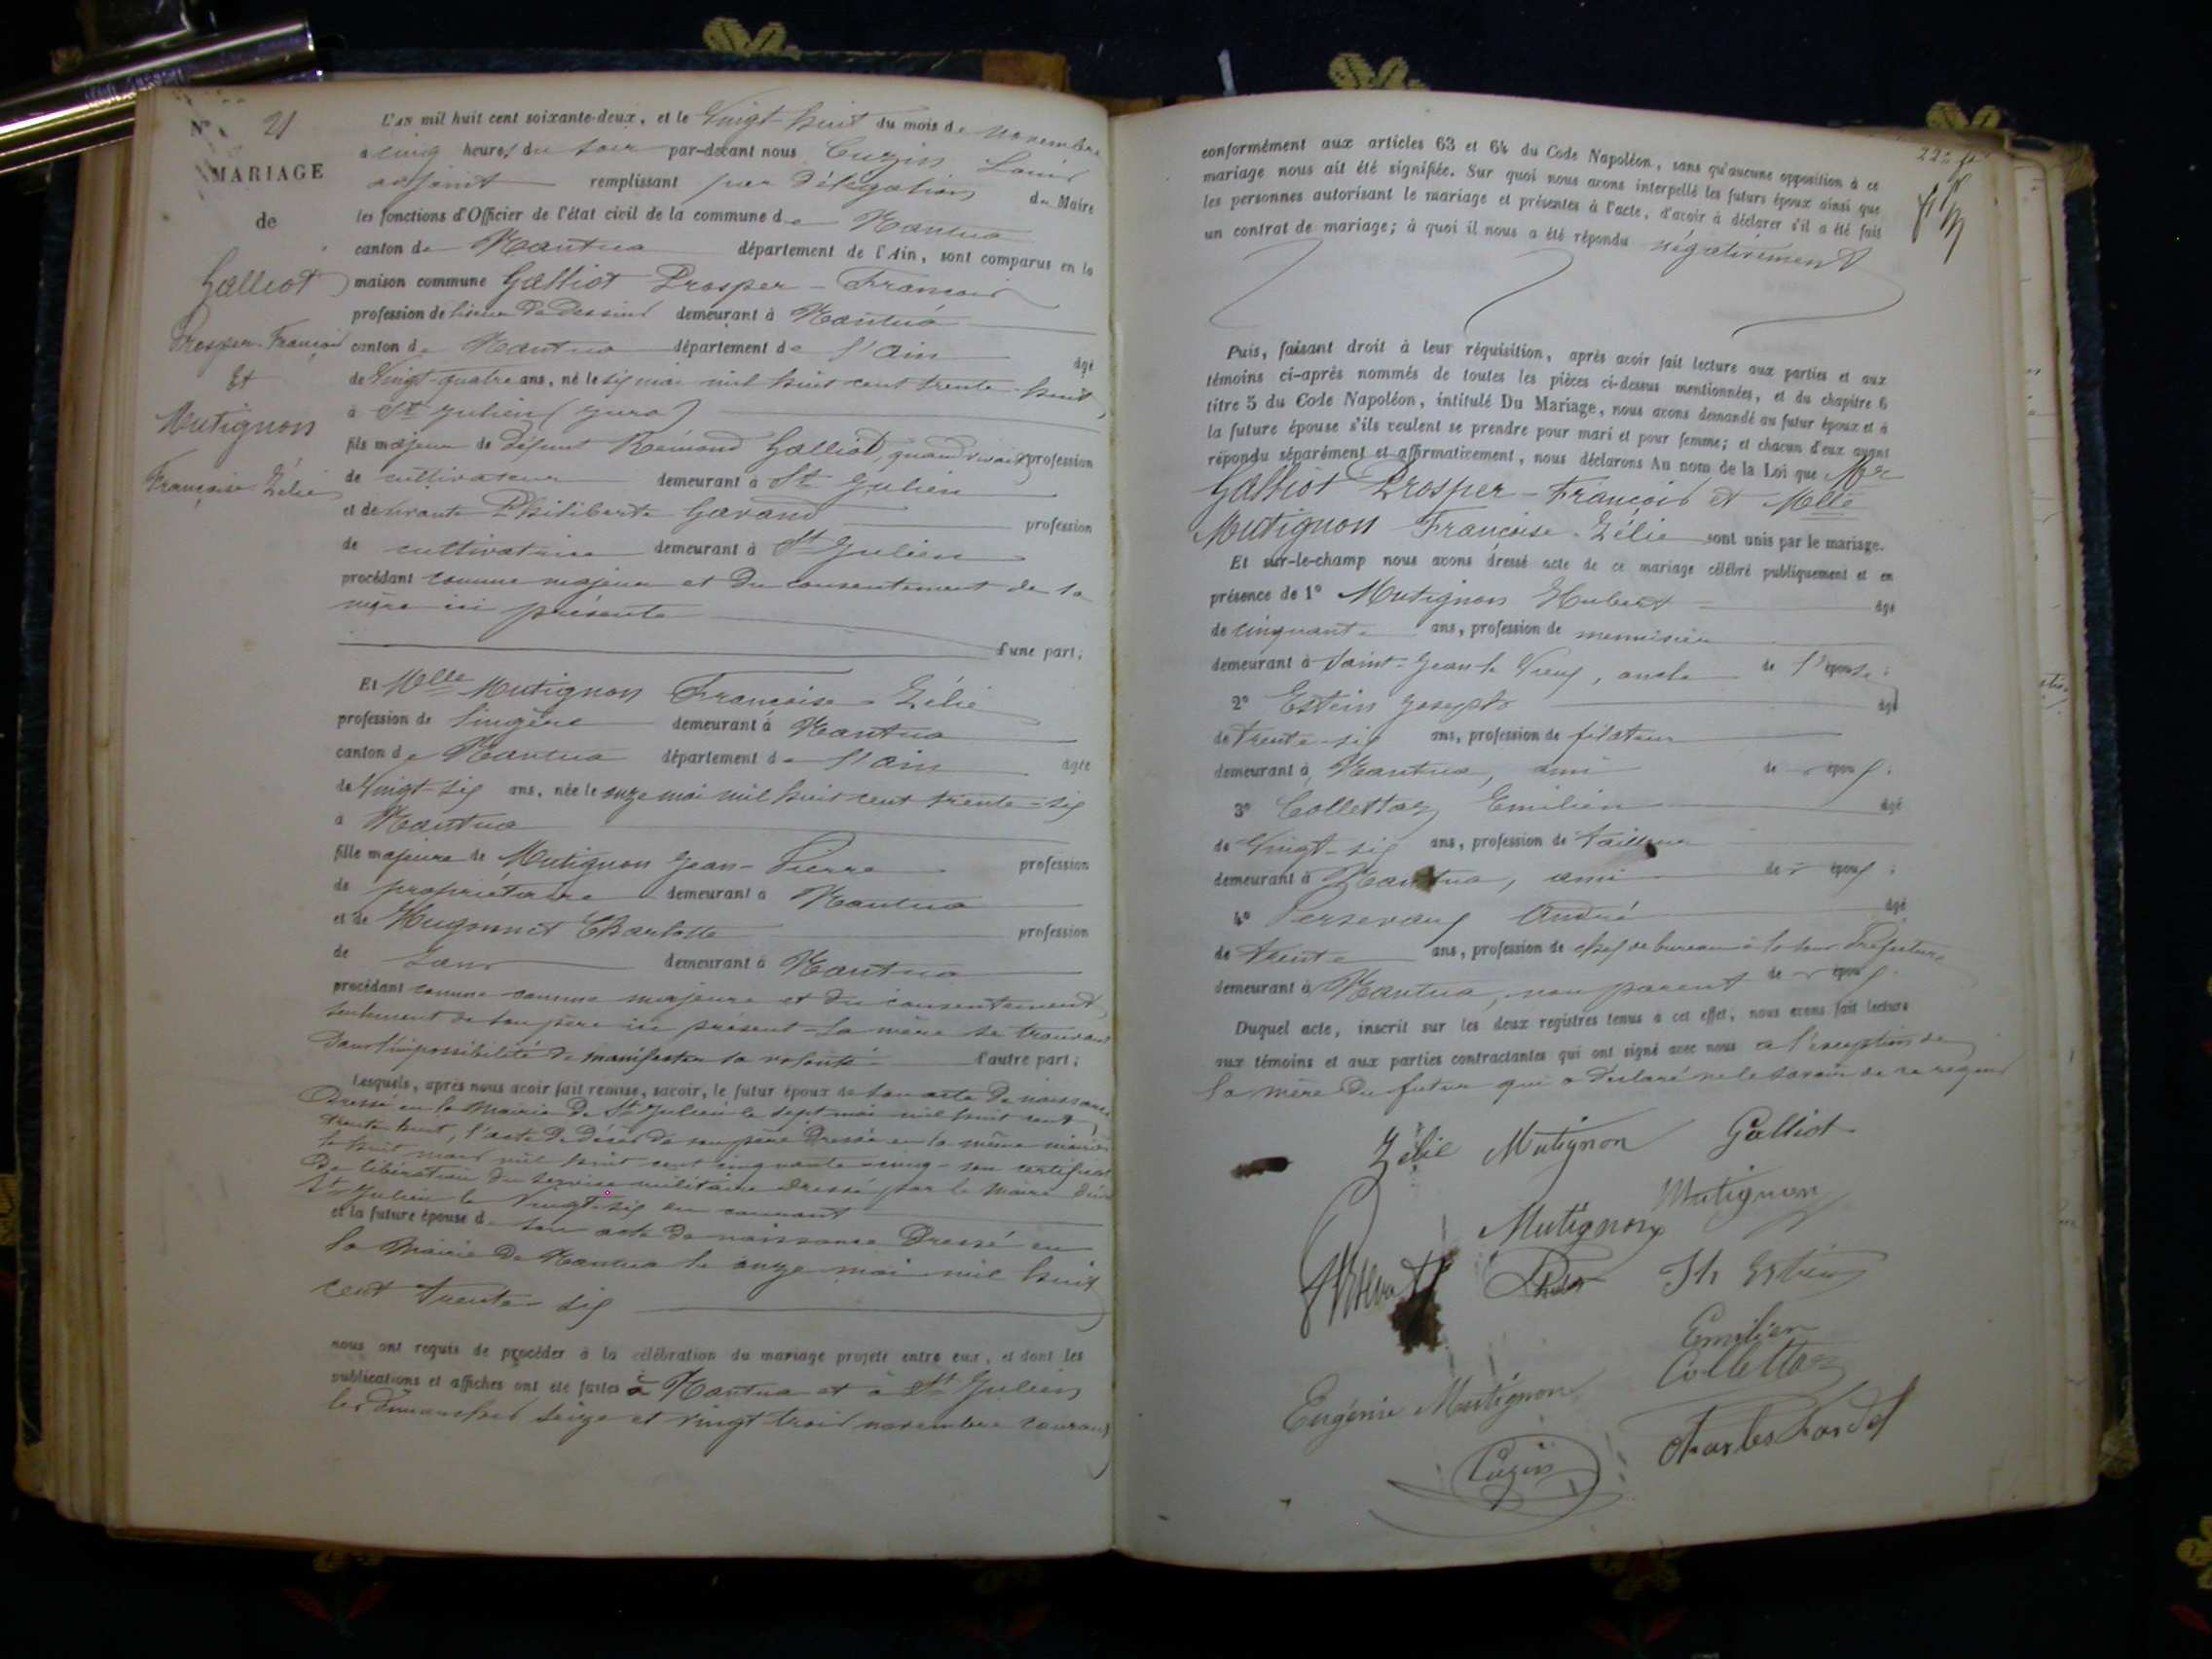 N° 21
MARIAGE
de
Galliot
Prosper-François
Et
Mutignon
Françoise Zélie
L'AN mil huit cent soixante-deux, et le Vingt-huit du mois de novembre
à cinq heures du soir par-devant nous Cuzin Louis
adjoint remplissant par délégation du Maire
les fonctions d'Officier de l'état civil de la commune de Nantua
canton de Nantua département de l'Ain, sont comparus en la
maison commune Galliot Prosper-François
profession de liseur de dessins demeurant à Nantua
canton de Nantua département de l'Ain âgé
de Vingt-quatre ans, né le six mai mil huit cent trente-huit,
à St Julien (Jura)
fils majeur de défunt Raimond Galliot, quand vivait profession
de cultivateur demeurant à St Julien
et de vivante Philiberte Gavand profession
de cultivatrice demeurant à St Julien
procédant comme majeur et du consentement de la
mère ici présente
d'une part;
Et Melle Mutignon Françoise-Zélie
profession de lingère demeurant à Nantua
canton de Nantua département de l'Ain âgée
de Vingt-six ans, née le onze mai mil huit cent trente-six
à Nantua
fille majeure de Mutignon Jean-Pierre profession
de propriétaire demeurant à Nantua
et de Hugonnet Charlotte profession
de sans demeurant à Nantua
procédant comme comme majeure et du consentement
seulement de son père ici présent - la mère se trouvant
dans l'impossibilité de manifester sa volonté d'autre part;
Lesquels, après nous avoir fait remise, savoir, le futur époux de son acte de naissance
dressé en la mairie de St Julien le sept mai mil huit cent
trente huit, l'acte de décès de son père dressé en la même mairie
le huit mars mil huit cent cinquante-cinq - son certificat
de libération du service militaire dressé par le maire
St Julien le Vingt-six du courant
et la future épouse de son acte de naissance dressé en
la Mairie de Nantua le onze mai mil huit
cent trente-six
nous ont requis de procéder à la célébration du mariage projeté entre eux, et dont les
publications et affiches ont été faites à Nantua et à St Julien
les dimanches seize et vingt trois novembre courant
conformément aux articles 63 et 64 du Code Napoléon, sans qu'aucune opposition à ce
mariage nous ait été signifiée. Sur quoi nous avons interpellé les futurs époux ainsi que
les personnes autorisant le mariage et présentes à l'acte, d'avoir à déclarer s'il a été fait
un contrat de mariage; à quoi il nous a été répondu négativement
Puis, faisant droit à leur réquisition, après avoir fait lecture aux parties et aux
témoins ci-après nommés de toutes les pièces ci-dessus mentionnées, et du chapitre 6
titre 5 du Code Napoléon, intitulé Du Mariage, nous avons demandé au futur époux et à
la future épouse s'ils veulent se prendre pour mari et pour femme; et chacun d'eux ayant
répondu séparément et affirmativement, nous déclarons Au nom de la Loi que Mr
Galliot Prosper-François et Melle
Mutignon Françoise-Zélie sont unis par le mariage.
Et sur-le-champ nous avons dressé acte de ce mariage célébré publiquement et en
présence de 1° Mutignon Hubert âgé
de cinquante ans, profession de menuisier
demeurant à Saint-Jean le Vieux, oncle de l'épouse;
2° Estein Joseph âgé
de trente-six ans, profession de filateur
demeurant à Nantua, ami de époux;
3° Collettaz Emilien âgé
de Vingt-six ans, profession de tailleur
demeurant à Nantua, ami de époux;
4° Persevaux André âgé
de trente ans, profession de chef de bureau à la sous Préfecture
demeurant à Nantua, non parent de époux.
Duquel acte, inscrit sur les deux registres tenus à cet effet, nous avons fait lecture
aux témoins et aux parties contractantes qui ont signé avec nous à l'exception de
la mère du futur qui a déclaré ne le savoir de ce requis
Zélie Mutignon Galliot
Mutignon
Mutignon
Emilien
Collettaz
Eugénie Mutignon
Cuzin